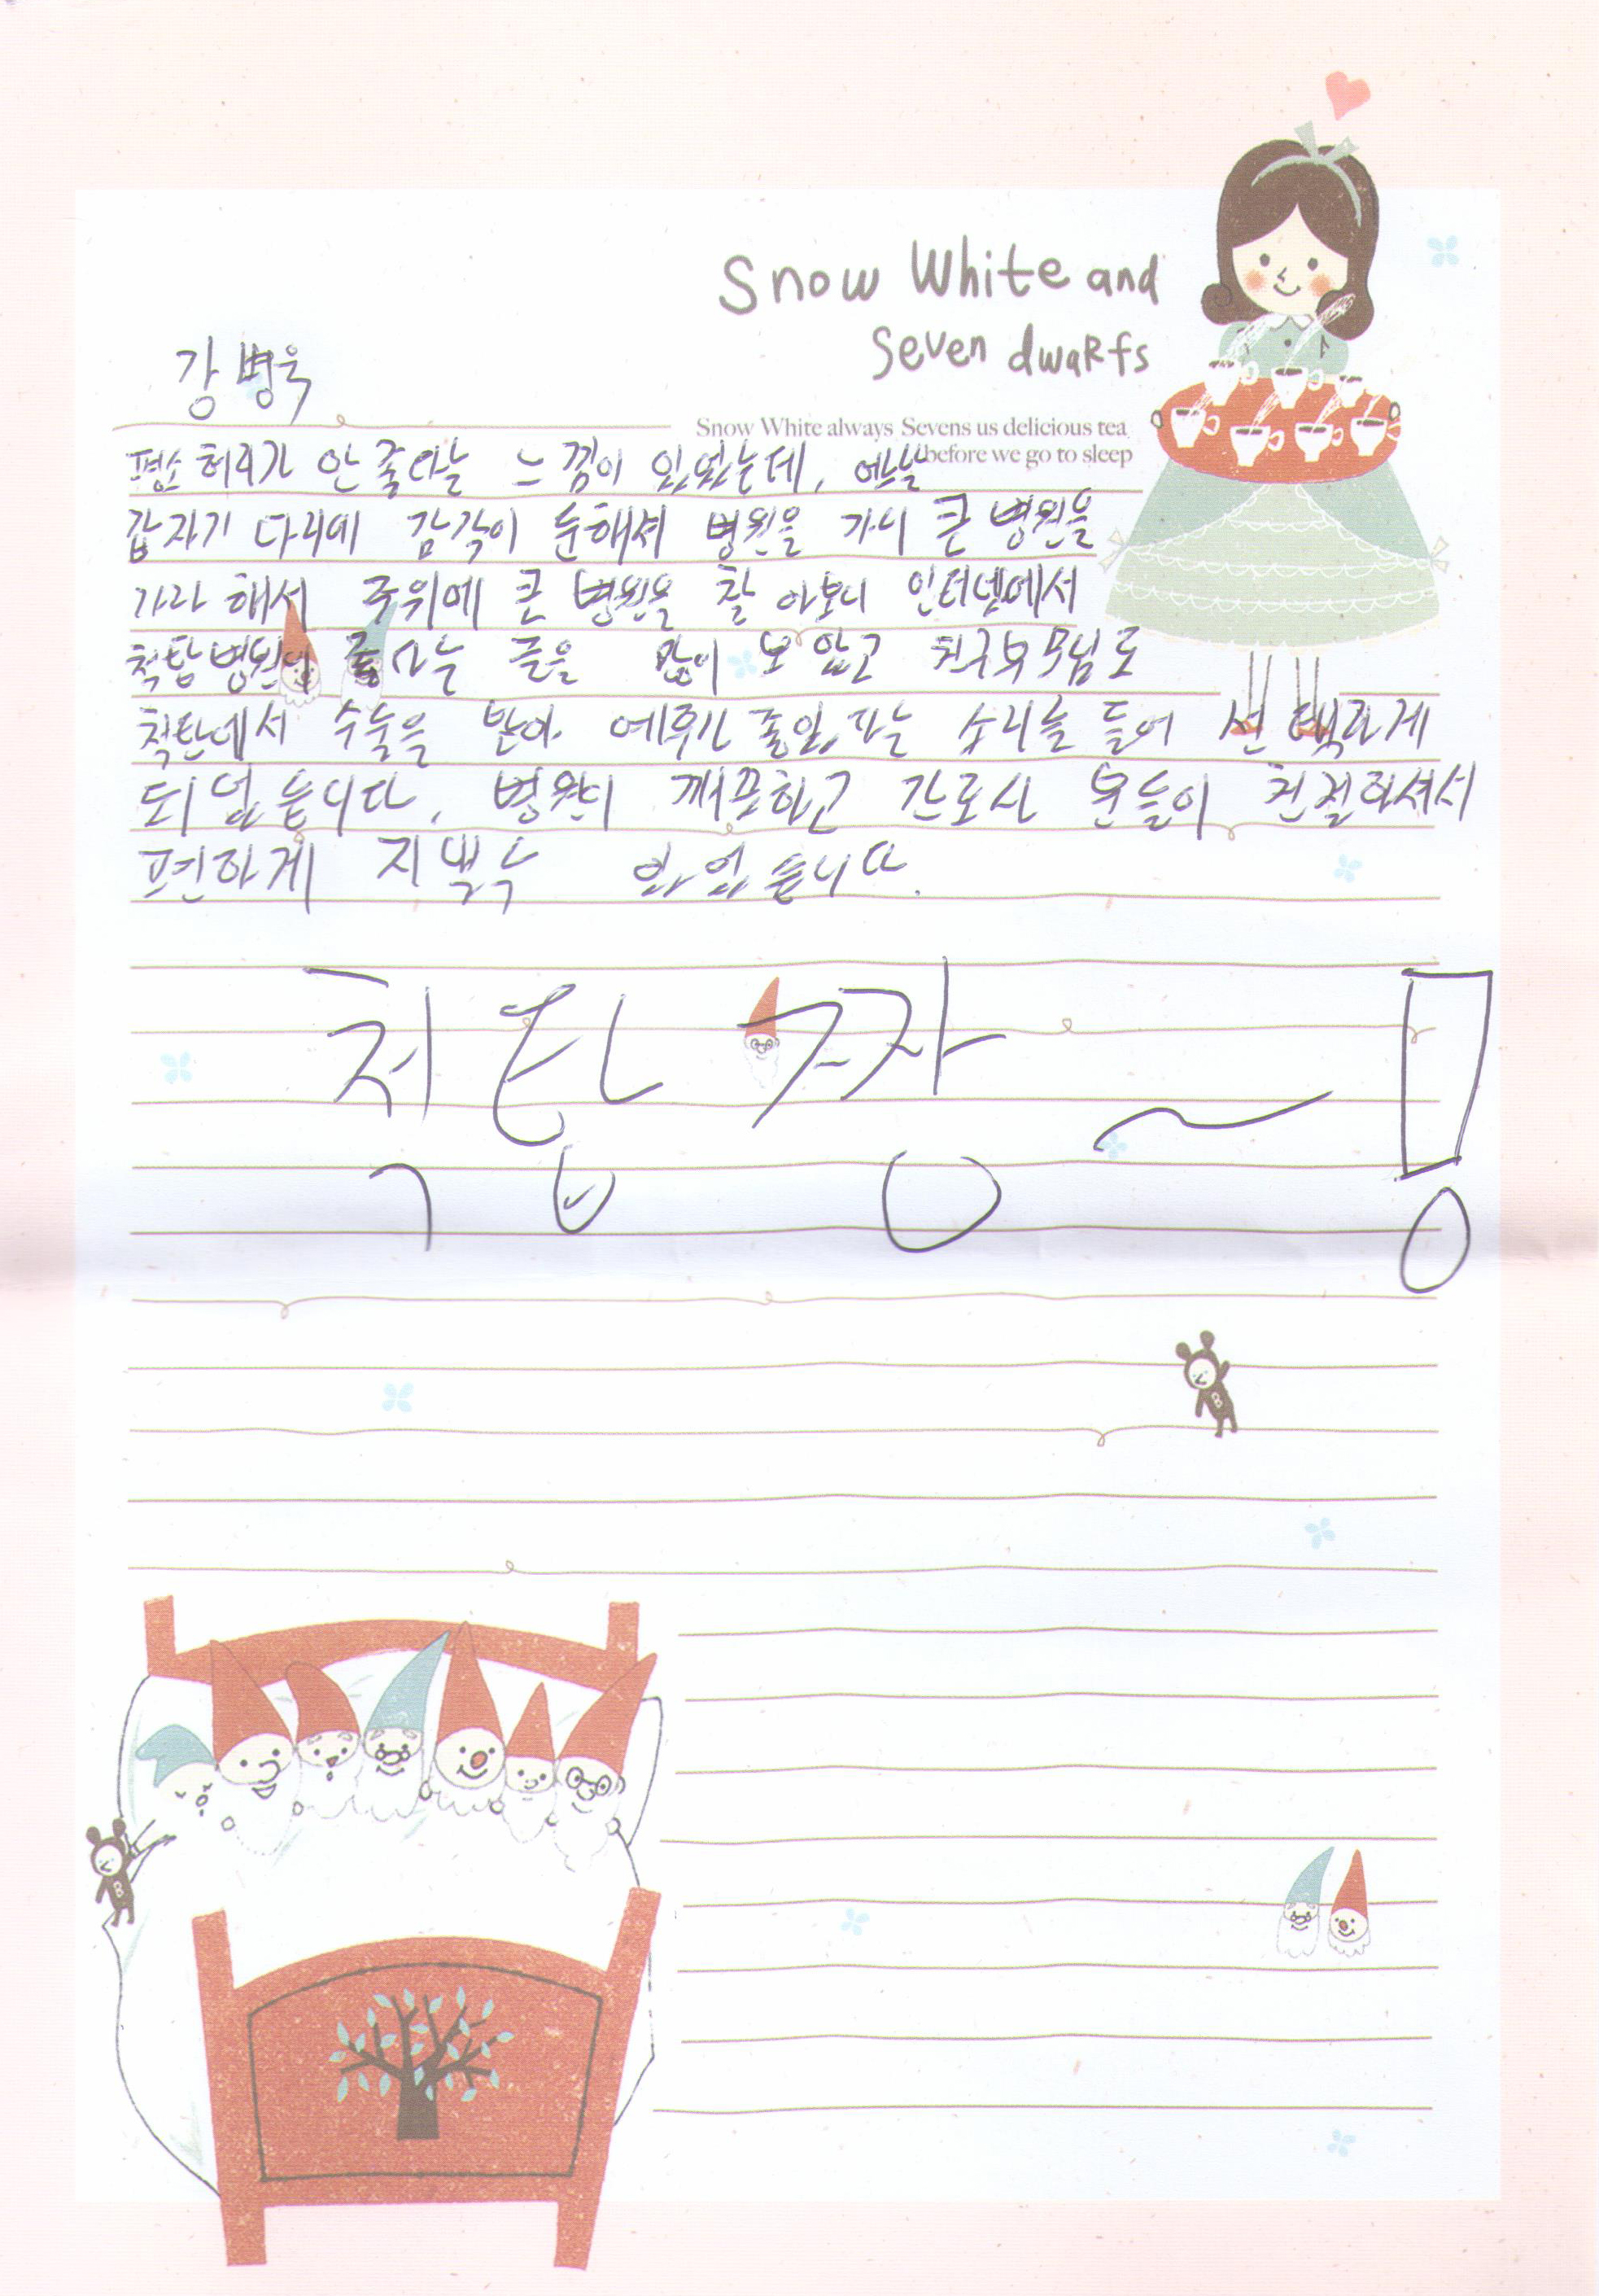 Snow White and
Seven dwarfs
강병욱
Snow White always Sevens us delicious tea
before we go to sleep
평소 허리가 안 좋다는 느낌이 있었는데,
갑자기 다리에 감각이 둔해셔 병원을 가니 큰 병원을
가라 해서 주위에 큰 병원을 찾아보니 인터넷에서
척탑병원이 좋다는 글을 많이 보았고 친구부모님도
척탑에서 수술을 받아 예후가 좋았다는 소리를 들어 선택하게
되었습니다. 병원이 깨끗하고 간호사 분들이 친절하셔서
편하게 지낼 수 있었습니다.
척탑 짱 ~!